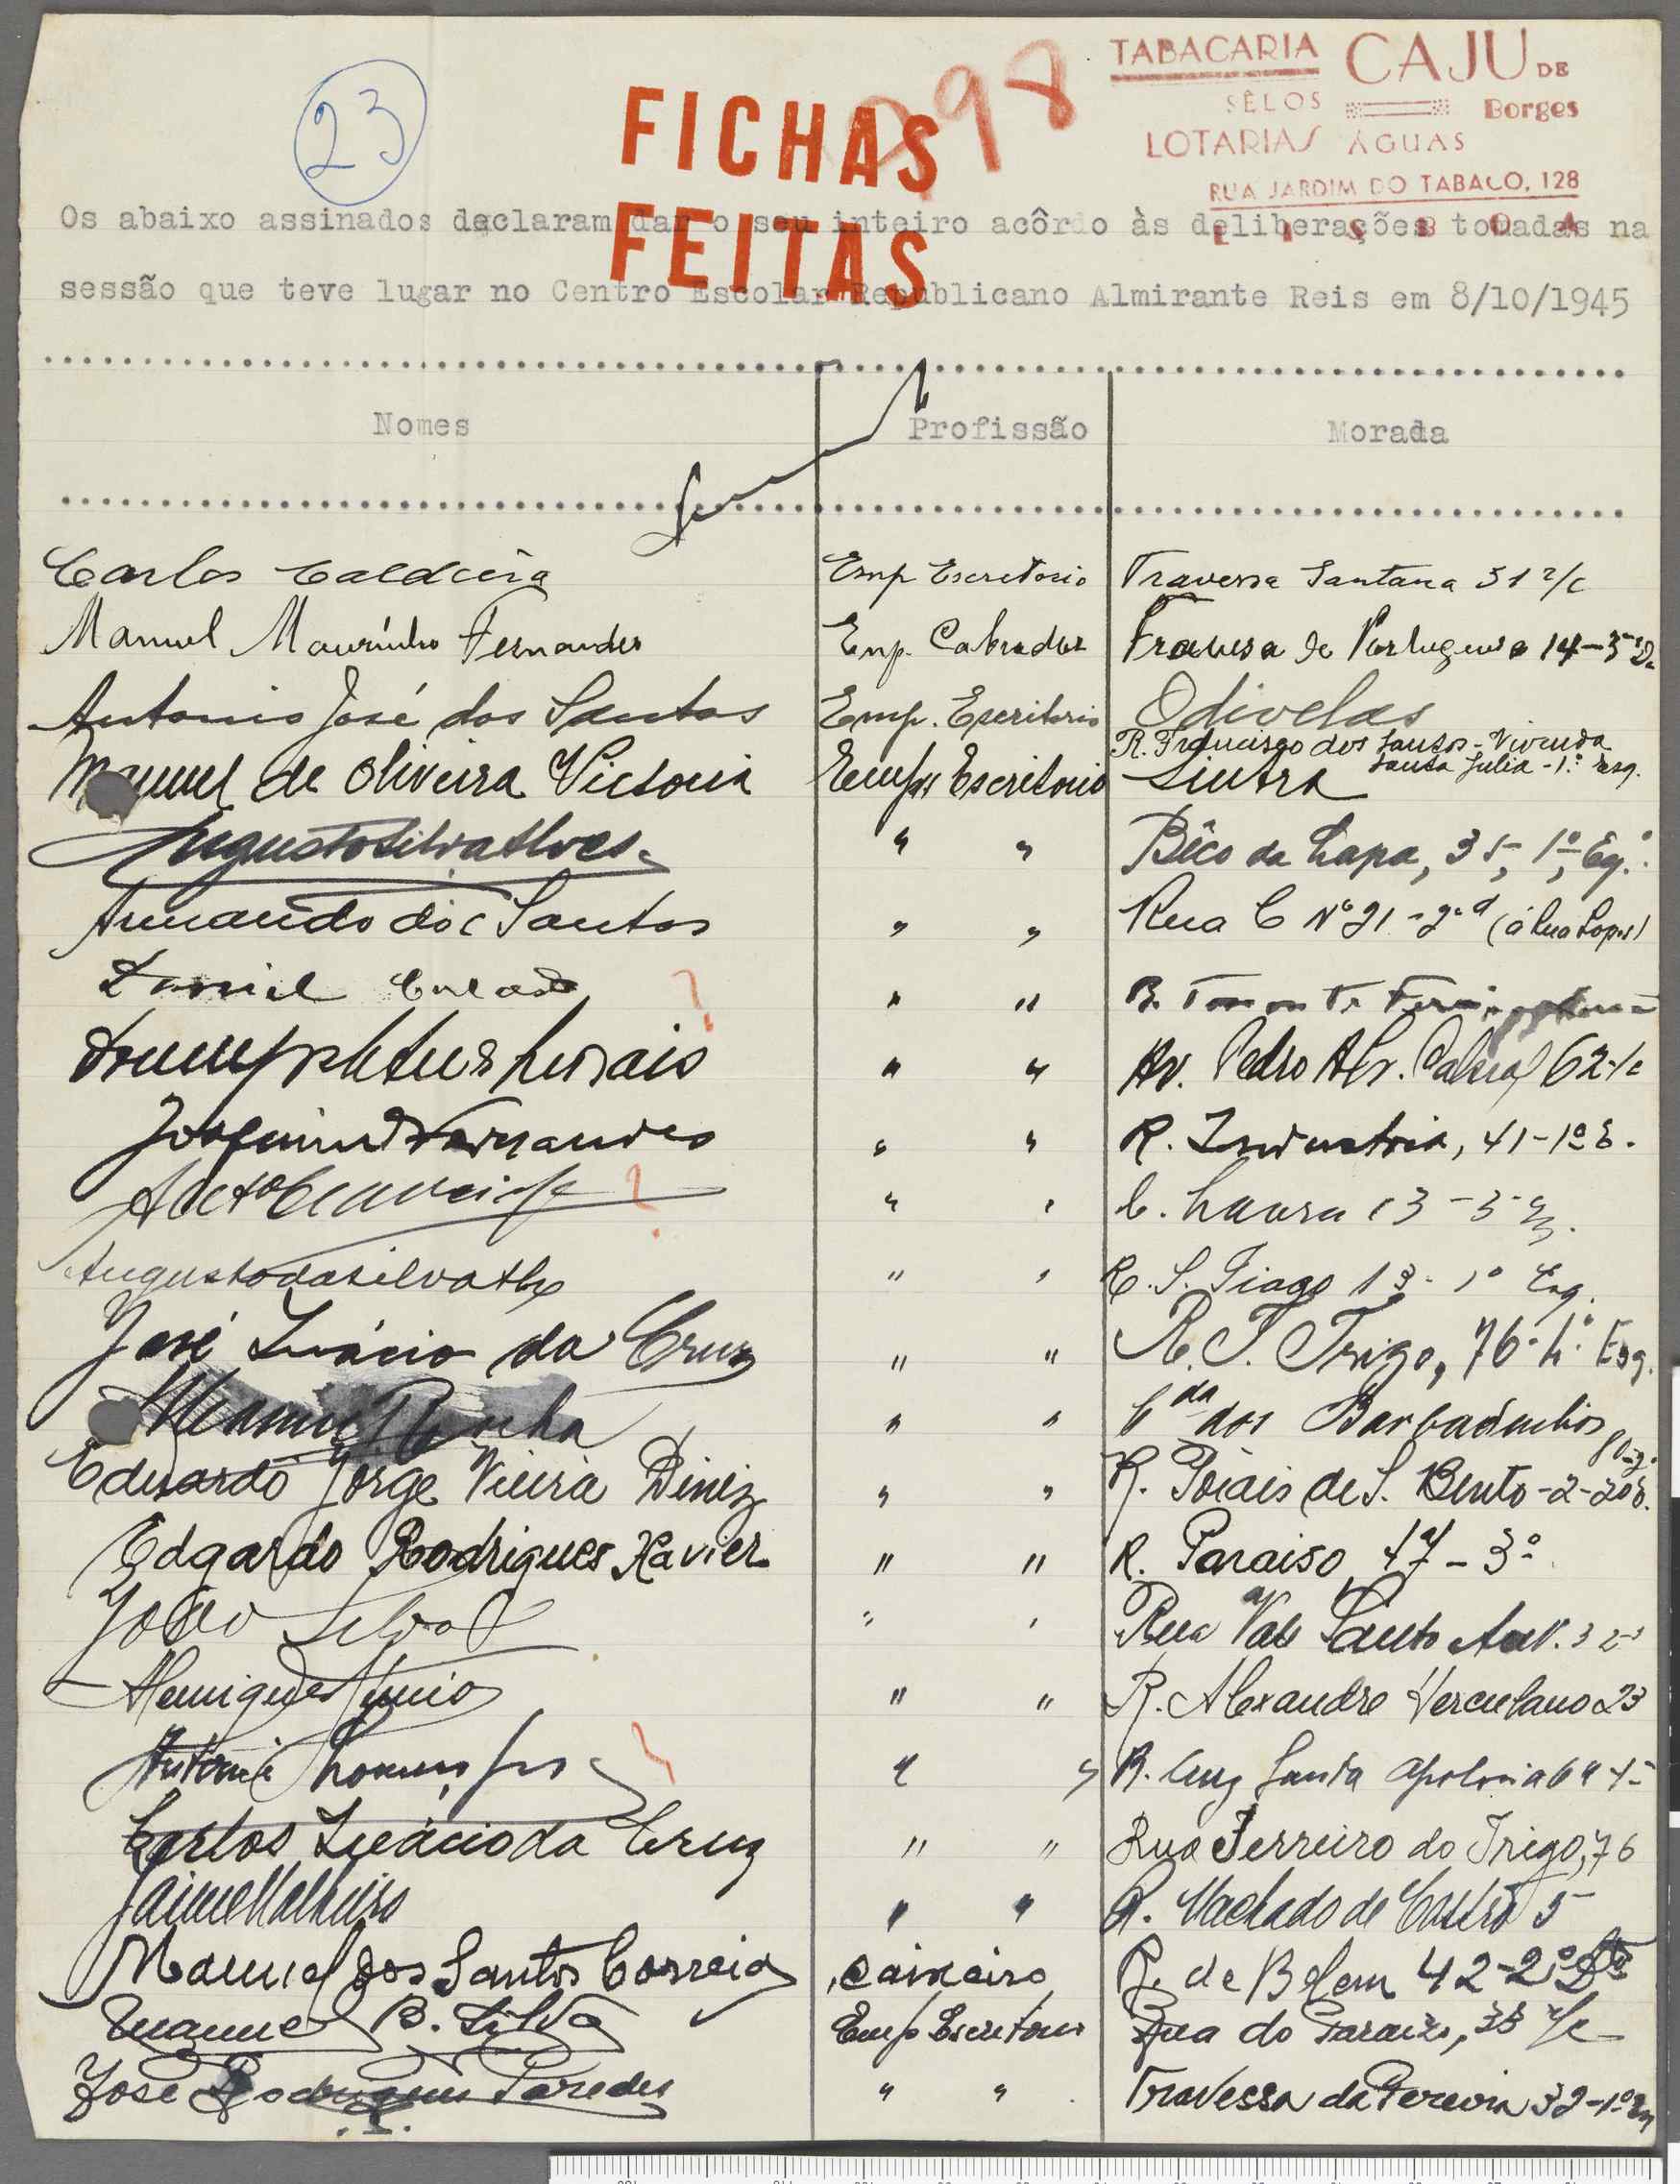 23
298
FICHAS
FEITAS
TABACARIA CAJU DE
SÊLOS Borges
LOTARIAS ÁGUAS
RUA JARDIM DO TABACO, 128
LISBOA
Os abaixo assinados declaram dar o seu inteiro acôrdo às deliberações tomadas na
sessão que teve lugar no Centro Escolar Republicano Almirante Reis em 8/10/1945
Nomes Profissão Morada
Carlos Caldeira Emp Escretorio Travessa Santana 31 r/c
Manuel Mourinho Fernandes Emp. Cobrador Travessa de Portuguesa 14-3º D.
Antonio José dos Santos Emp. Escritorio Odivelas
R. Francisco dos Santos - Vivenda
Santa Julia - 1.º Esq.
Manuel de Oliveira Victoria Empr Escritorio Sintra
Augusto Silva Alves " " Bêco da Lapa, 35, 1º, Eq.º
Armando dos Santos " " Rua C Nº 21 - 2º d
Daniel ? " "
Morais " " Av. Pedro Alv. Cabral 62 r/c
Joaquim Fernandes " " R. Industria, 41-1º E.
? " " C. Laura 13-3-
Augusto da Silva " " R. S. Tiago 13- 1º Esq.
José Inácio da Cruz " " R. T. Trigo, 76-4º Esq.
Rocha " " Cda dos Barbadinhos
Eduardo Jorge Vieira Diniz " " R. Poiais de S. Bento -2-2º E.
Edgardo Rodrigues Xavier " " R. Paraiso 17-3º
João Silva " " Rua Vale Santo Ant. 32
Henrique " " R. Alexandre Herculano 23
Antonio " " R. Cruz Santa Apolonia
Carlos Inácio da Cruz " " Rua Terreiro do Trigo, 76
Jaime " " R. Machado de Castro 5
Manuel dos Santos Correia caixeiro R. de Belem 42-2º Dto
Manuel B. Silva Emp Escritorio Rua do Paraizo, 33 r/c
José Rodrigues Paredes " " Travessa da Pereira 32-1º